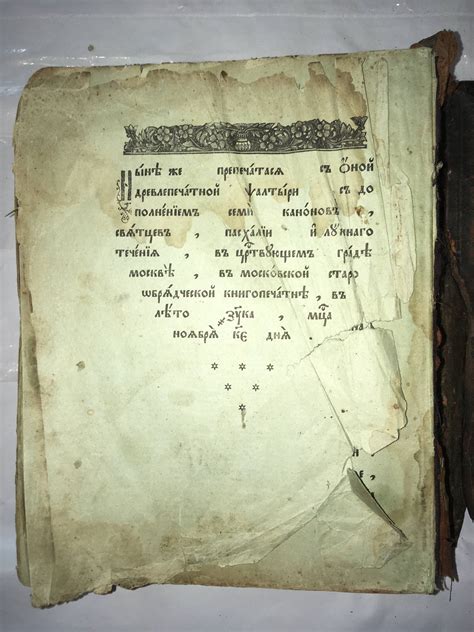 Ны́нѣ же препеча́тася съ о́ной
древлепеча́тной ѱалты́ри съ до
полне́нїемъ семѝ кано́новъ ,
свѧ́тцевъ , пасха́лїи и҆ лу́ннаго
тече́нїѧ , въ ца́рствующемъ гра́дѣ
москвѣ̀ , въ моско́вской старо
ѡбрѧ́дческой книгопеча́тнѣ , въ
лѣ́то ,зу҃ка , мц҃а
ноѧ́брѧ к҃е днѧ̀